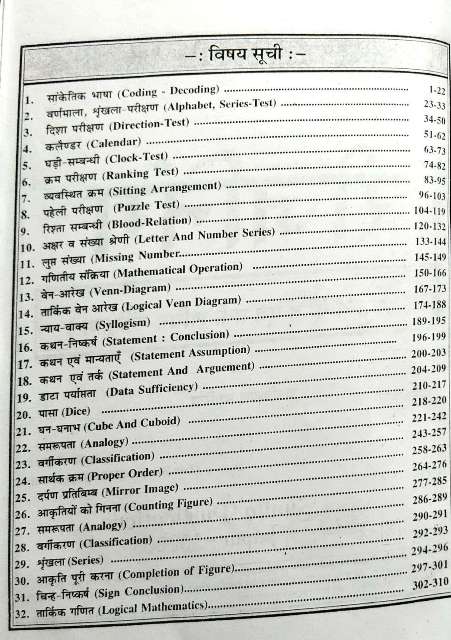 –: विषय सूची :–
1. सांकेतिक भाषा (Coding - Decoding) 1-22
2. वर्णमाला, श्रृंखला-परीक्षण (Alphabet, Series-Test) 23-33
3. दिशा परीक्षण (Direction-Test) 34-50
4. कलैण्डर (Calendar) 51-62
5. घड़ी-सम्बन्धी (Clock-Test) 63-73
6. क्रम परीक्षण (Ranking Test) 74-82
7. व्यवस्थित क्रम (Sitting Arrangement) 83-95
8. पहेली परीक्षण (Puzzle Test) 96-103
9. रिश्ता सम्बन्धी (Blood-Relation) 104-119
10. अक्षर व संख्या श्रेणी (Letter And Number Series) 120-132
11. लुप्त संख्या (Missing Number) 133-144
12. गणितीय संक्रिया (Mathematical Operation) 145-149
13. वेन-आरेख (Venn-Diagram) 150-166
14. तार्किक वेन आरेख (Logical Venn Diagram) 167-173
15. न्याय-वाक्य (Syllogism) 174-188
16. कथन-निष्कर्ष (Statement : Conclusion) 189-195
17. कथन एवं मान्यताएँ (Statement Assumption) 196-199
18. कथन एवं तर्क (Statement And Arguement) 200-203
19. डाटा पर्याप्तता (Data Sufficiency) 204-209
20. पासा (Dice) 210-217
21. घन-घनाभ (Cube And Cuboid) 218-220
22. समरूपता (Analogy) 221-242
23. वर्गीकरण (Classification) 243-257
24. सार्थक क्रम (Proper Order) 258-263
25. दर्पण प्रतिबिम्ब (Mirror Image) 264-276
26. आकृतियों को गिनना (Counting Figure) 277-285
27. समरूपता (Analogy) 286-289
28. वर्गीकरण (Classification) 290-291
29. श्रृंखला (Series) 292-293
30. आकृति पूरी करना (Completion of Figure) 294-296
31. चिन्ह-निष्कर्ष (Sign Conclusion) 297-301
32. तार्किक गणित (Logical Mathematics) 302-310